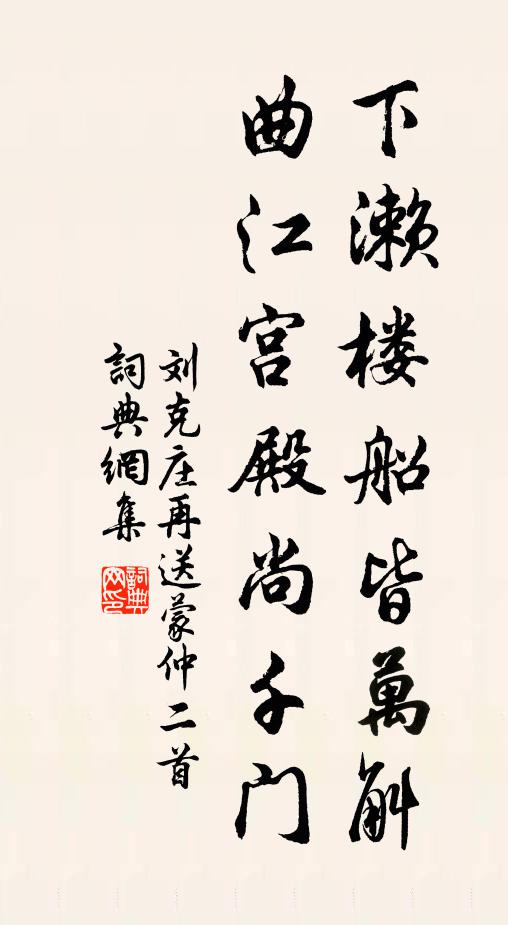 下濑楼船皆萬斛
曲江宫殿尚千门
刘克庄再送蒙仲二首
詞典網集
詞典网印